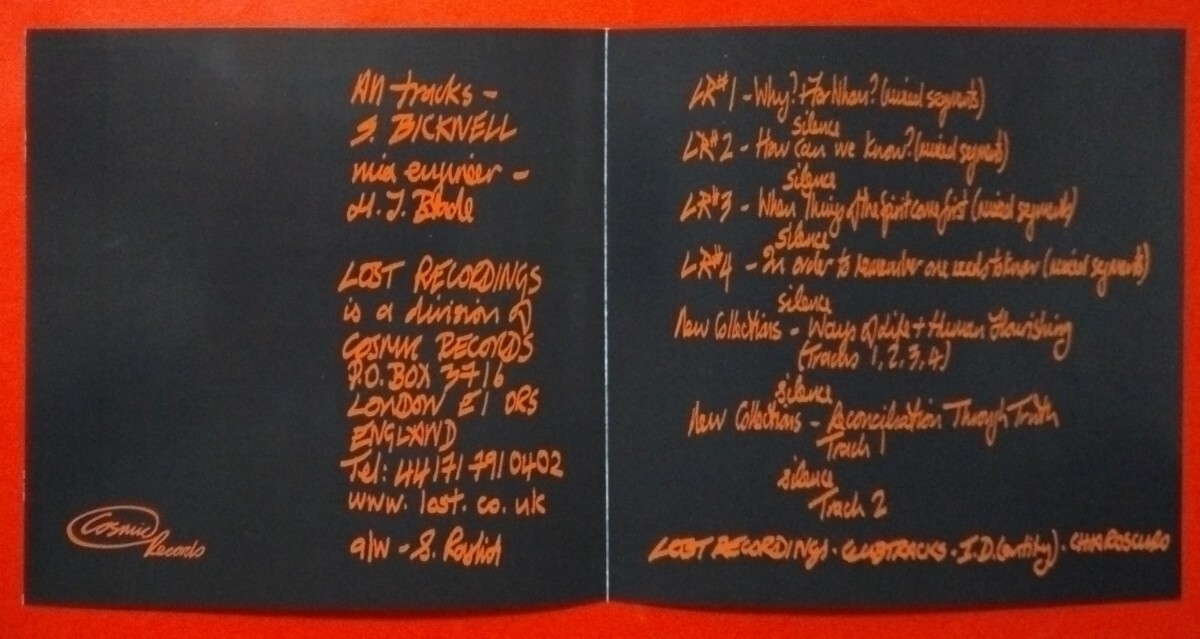 All tracks -
S. BICKNELL
mix engineer -
H. J. Blade
LOST RECORDINGS
is a division of
COSMIC RECORDS
P.O. BOX 3716
LONDON E1 0RS
ENGLAND
Tel: 44 171 791 0402
www. lost. co. uk
a/w - S.
Cosmic
Records
LR#1 - Why? + For Whom? (mixed segments)
silence
LR#2 - How can we know? (mixed segments)
silence
LR#3 - When Things of the Spirit come first (mixed segments)
silence
LR#4 - In order to remember one needs to know (mixed segments)
silence
New Collections - Ways of Life + Human Flourishing
(Tracks 1, 2, 3, 4)
silence
New Collections - Reconciliation Through Truth
Track 1
silence
Track 2
LOST RECORDINGS · CLUBTRACKS · I.D.(entity) · CHIAROSCURO